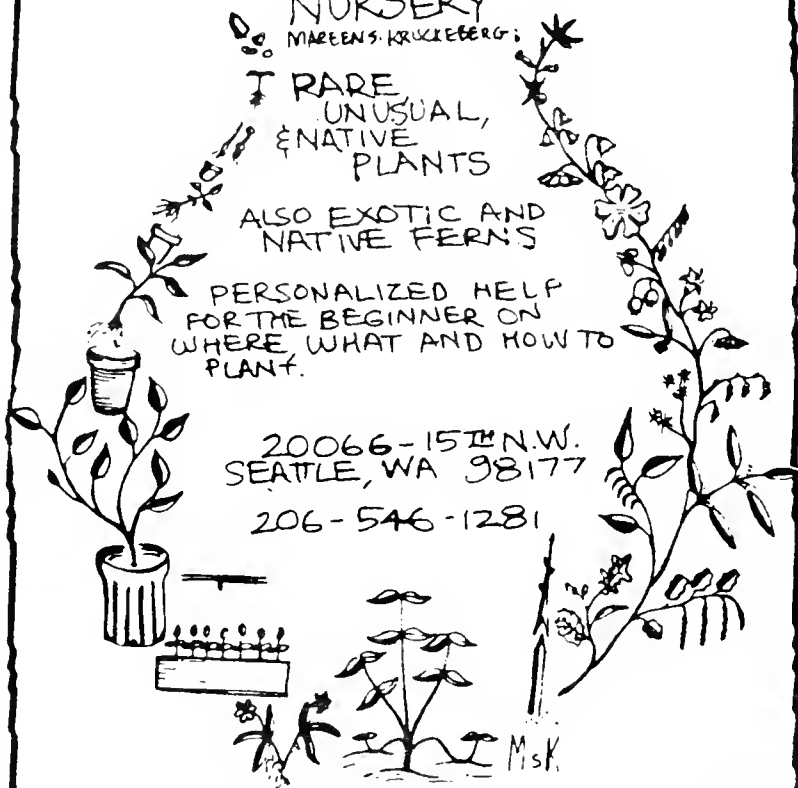 NURSERY
MAREEN S. KRUCKEBERG:
RARE,
UNUSUAL,
&NATIVE
PLANTS
ALSO EXOTIC AND
NATIVE FERNS
PERSONALIZED HELP
FOR THE BEGINNER ON
WHERE, WHAT AND HOW TO
PLANT.
20066-15TH N.W.
SEATTLE, WA 98177
206-546-1281
MsK